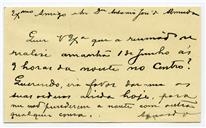 Exmo Amigo e Sr. Dr. Antonio José de Almeida
Quer V. Exa. que a reunião se
realise amanhã 1 de Junho ás
9 horas da noute no Centro?
Querendo, era favor dar-me as
suas ordens ainda hoje, para
me não prenderem a noute com outra
qualquer cousa.